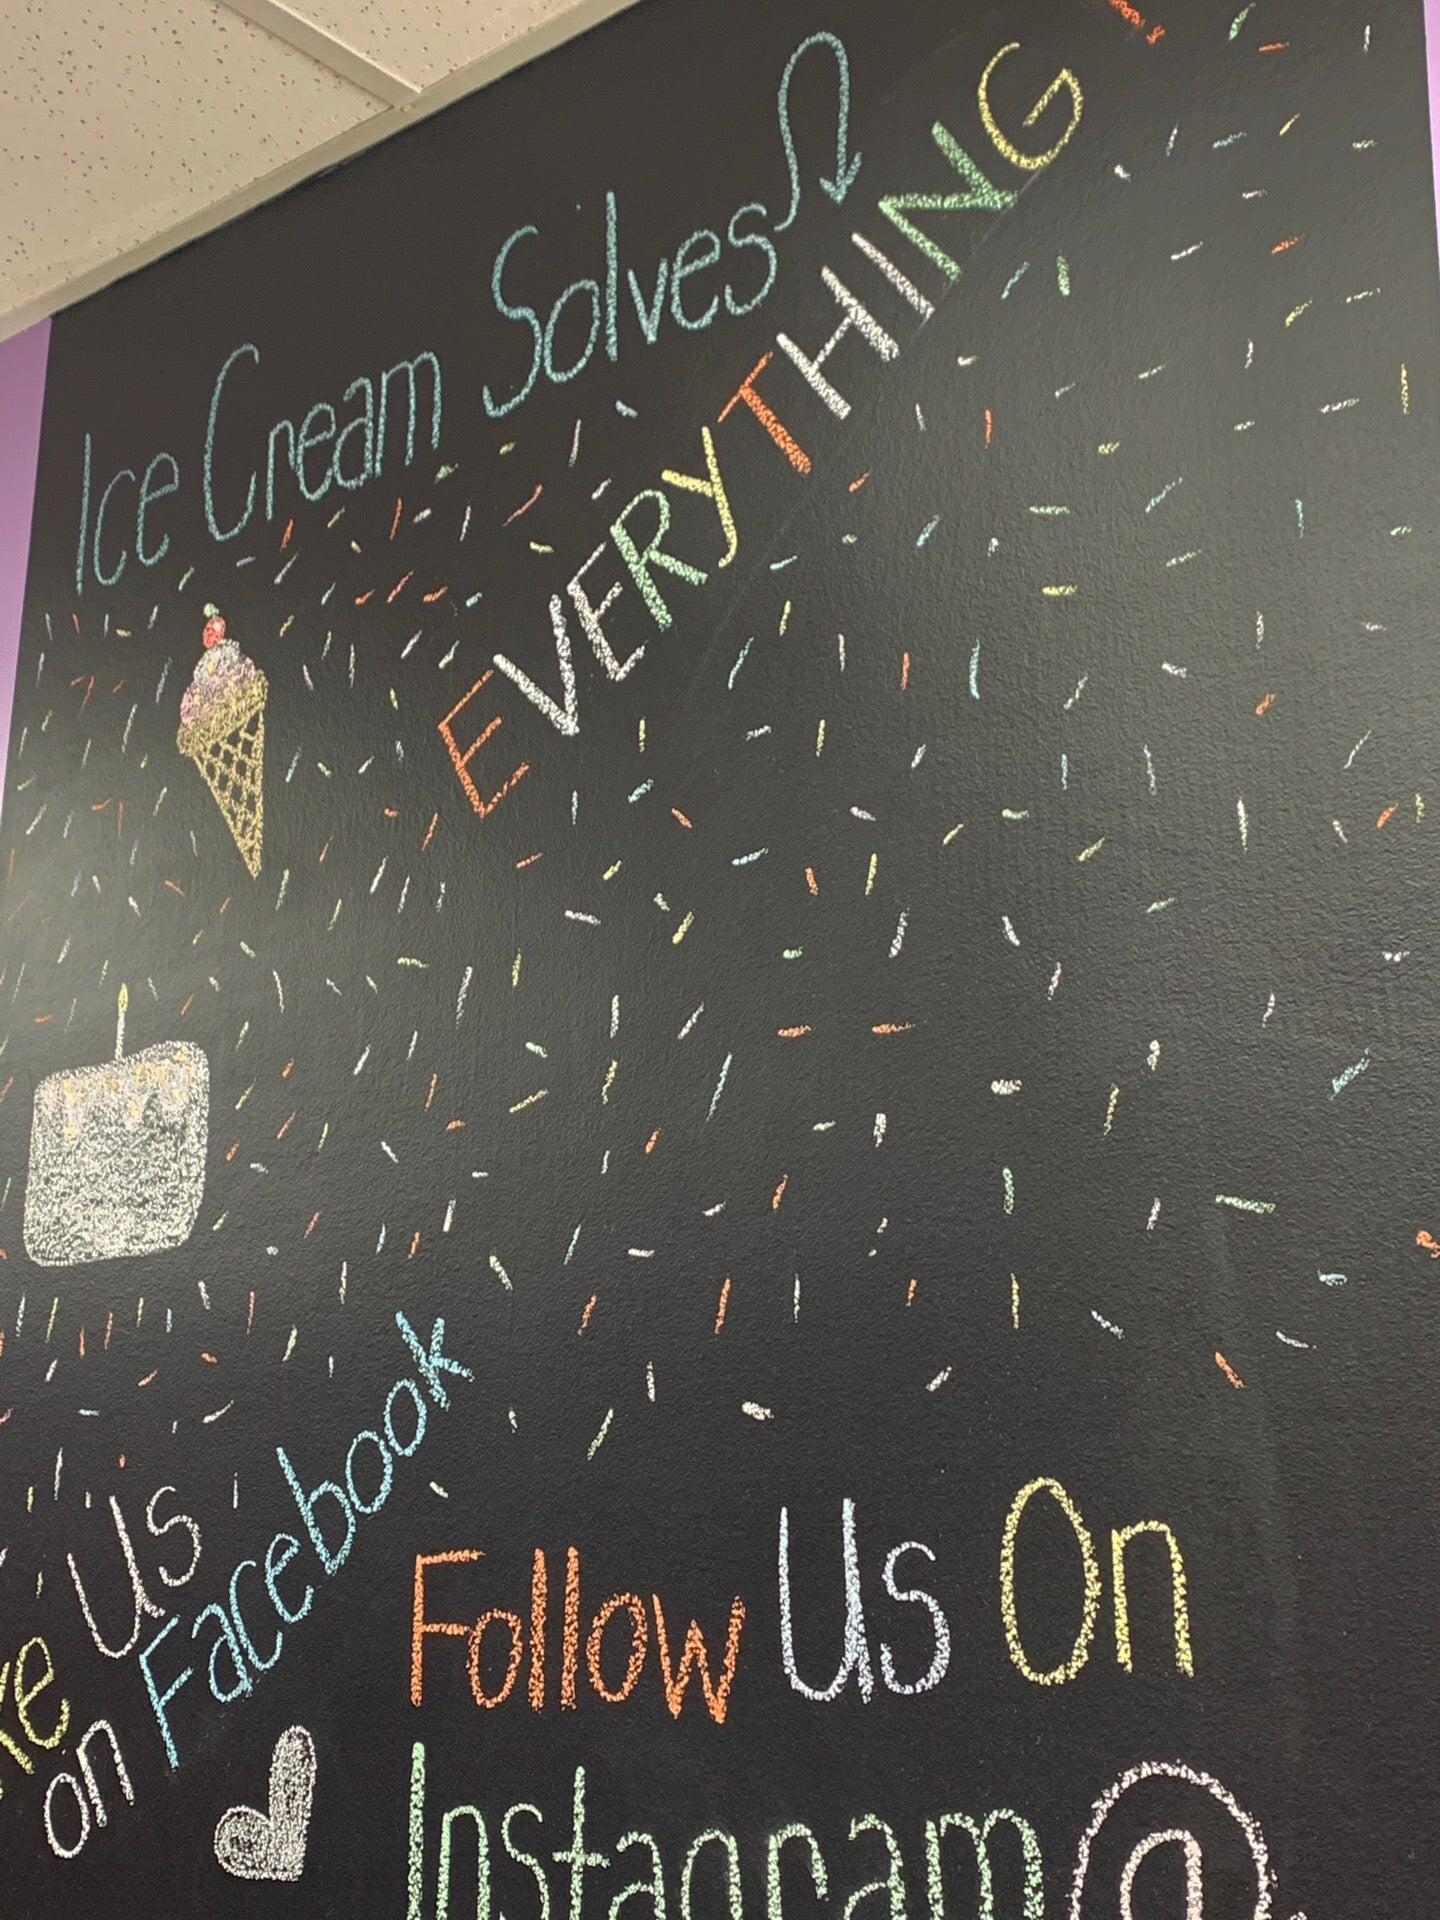 Ice Cream Solves
EVERYTHING
Us
on Facebook
Follow Us On
Instagram @